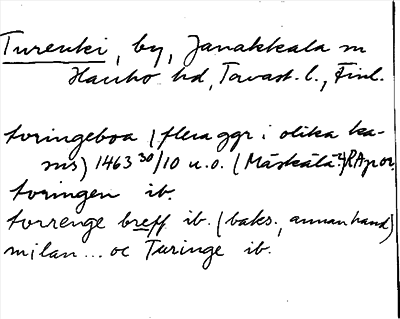 Turenki, by, Janakkala sn
Hauho hd, Tavast. l., Finl.
toringeboa (flera ggr i olika ka-
sus) 1463 30/10 u.o. (Mäskälä?) RAp or.
toringen ib.
torrenge breff ib. (baks., annan hand)
milan... oc Turinge ib.